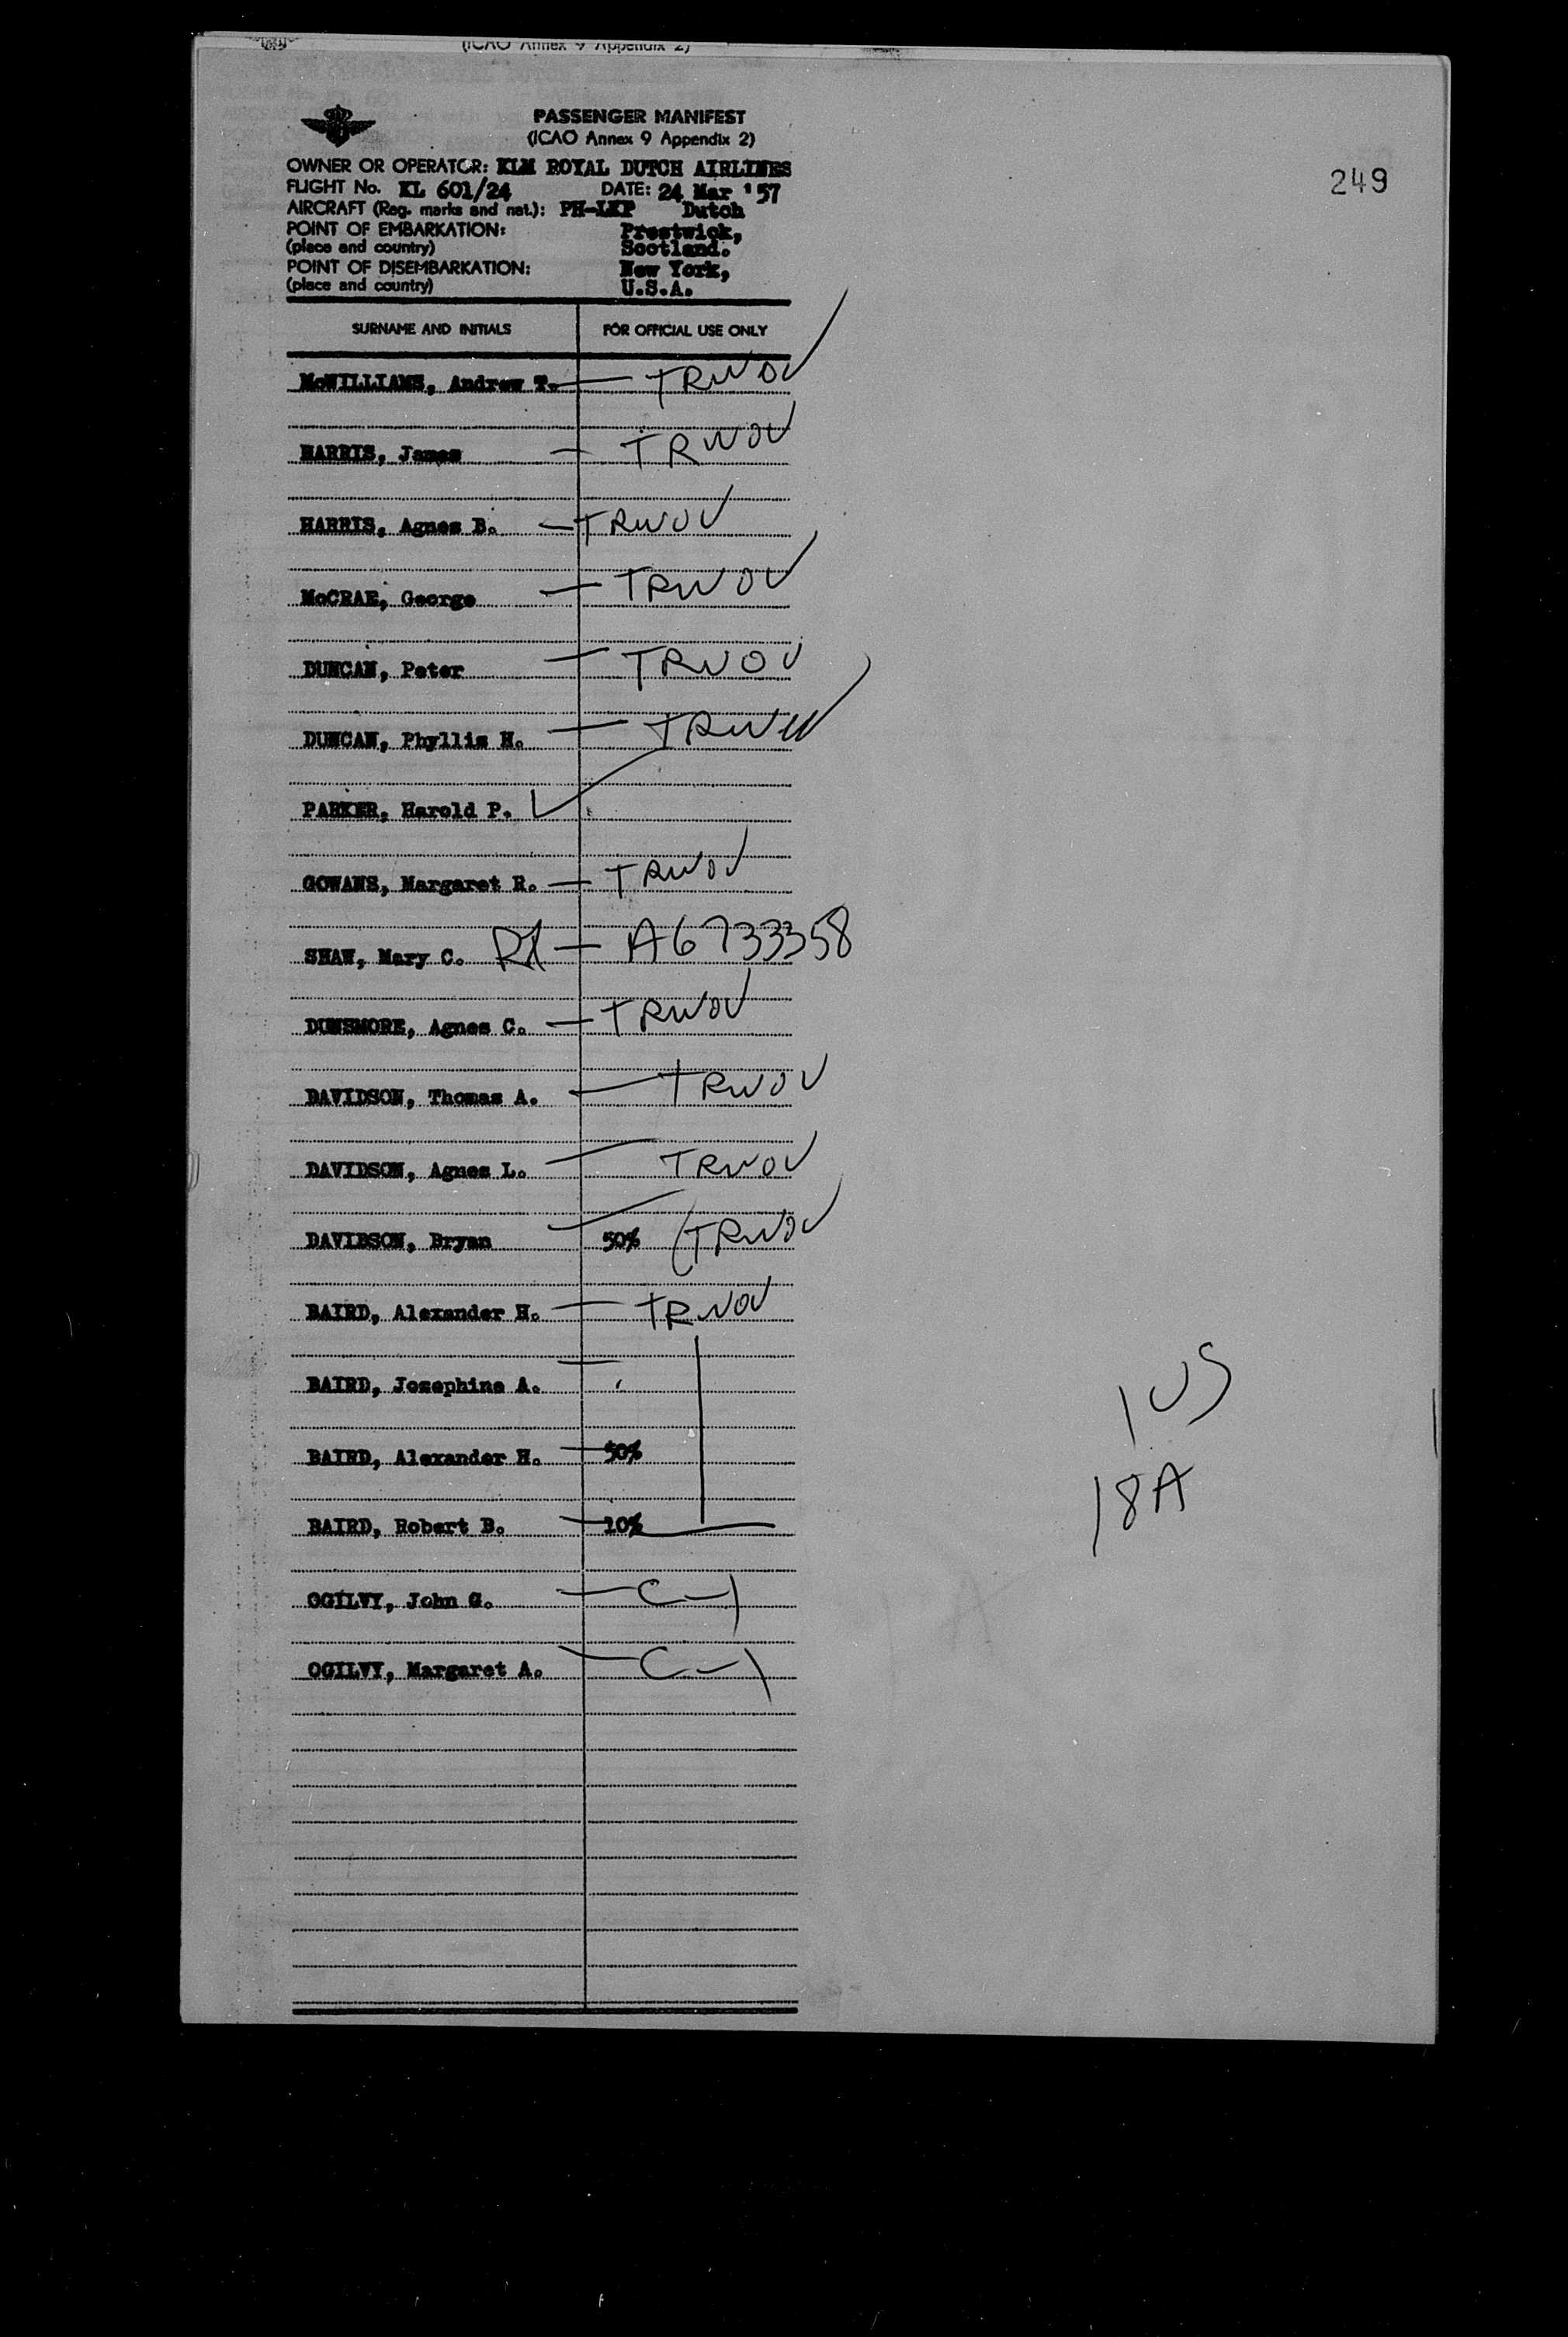 (ICAO Annex 9 Appendix 2)
249
PASSENGER MANIFEST
(ICAO Annex 9 Appendix 2)
OWNER OR OPERATOR: KLM ROYAL DUTCH AIRLINES
FLIGHT No. KL 601/24 DATE: 24 Mar '57
AIRCRAFT (Reg. marks and nat.): PH-LKP Dutch
POINT OF EMBARKATION: Prestwick,
(place and country) Scotland.
POINT OF DISEMBARKATION: New York,
(place and country) U.S.A.
SURNAME AND INITIALS FOR OFFICIAL USE ONLY
McWILLIAMS, Andrew T. — TRWOV
HARRIS, James — TRWOV
HARRIS, Agnes B. — TRWOV
McCRAE, George — TRWOV
DUNCAN, Peter — TRWOV
DUNCAN, Phyllis H. — TRW
PARKER, Harold P.
GOWANS, Margaret R. — TRWOV
SHAW, Mary C. — A6733358
DUNSMORE, Agnes C. — TRWOV
DAVIDSON, Thomas A. — TRWOV
DAVIDSON, Agnes L. — TRWOV
DAVIDSON, Bryan — 50% (TRWOV
BAIRD, Alexander H. — TRWOV
BAIRD, Josephine A. —
BAIRD, Alexander H. — 50%
BAIRD, Robert B. — 10%
OGILVY, John G. — C-1
OGILVY, Margaret A. — C-1
1 US
18A